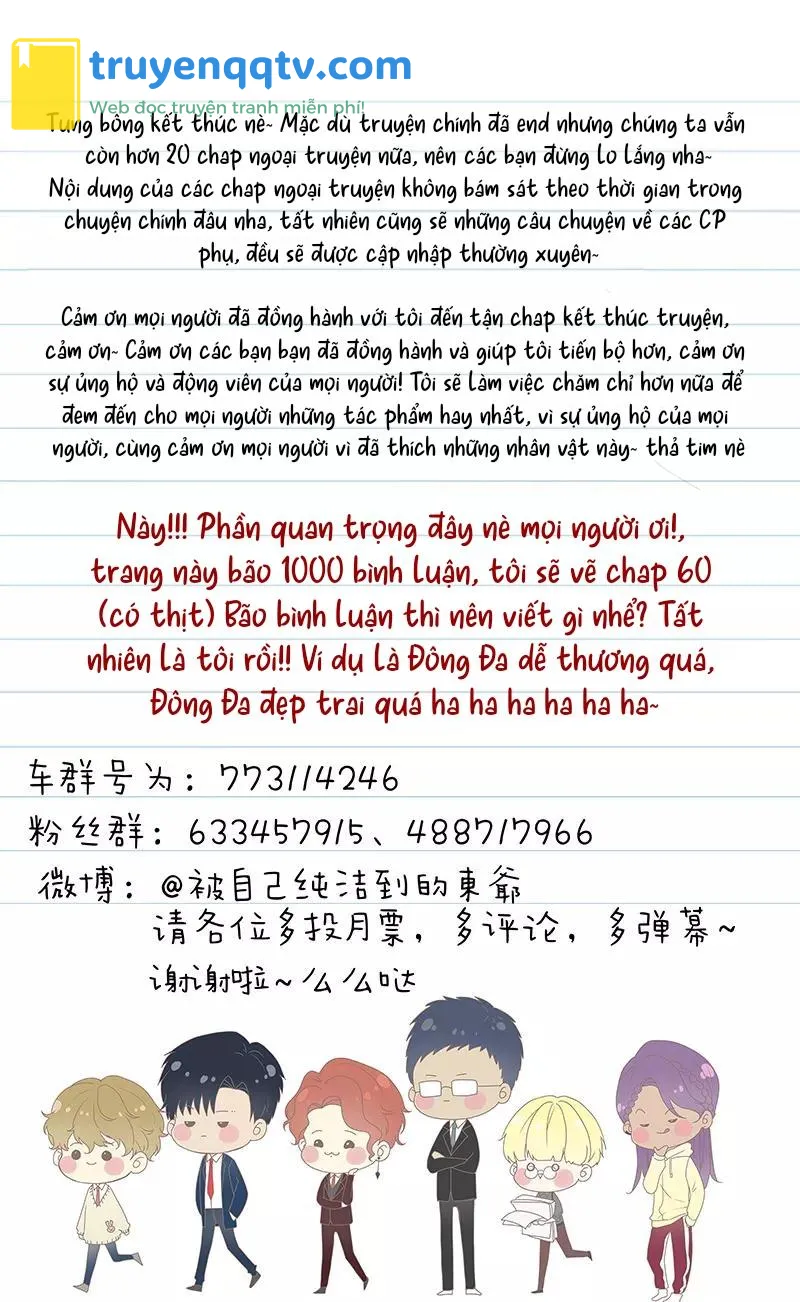 truyenqqtv.com
Web đọc truyện tranh miễn phí!
Tung bông kết thúc nè~ Mặc dù truyện chính đã end nhưng chúng ta vẫn
còn hơn 20 chap ngoại truyện nữa, nên các bạn đừng lo lắng nha~
Nội dung của các chap ngoại truyện không bám sát theo thời gian trong
chuyện chính đâu nha, tất nhiên cũng sẽ những câu chuyện về các CP
phụ, đều sẽ được cập nhập thường xuyên~
Cảm ơn mọi người đã đồng hành với tôi đến tận chap kết thúc truyện,
cảm ơn~ Cảm ơn các bạn bạn đã đồng hành và giúp tôi tiến bộ hơn, cảm ơn
sự ủng hộ và động viên của mọi người! Tôi sẽ làm việc chăm chỉ hơn nữa để
đem đến cho mọi người những tác phẩm hay nhất, vì sự ủng hộ của mọi
người, cùng cảm ơn mọi người vì đã thích những nhân vật này~ thả tim nè
Này!!! Phần quan trọng đây nè mọi người ơi!,
trang này bão 1000 bình luận, tôi sẽ vẽ chap 60
(có thịt) Bão bình luận thì nên viết gì nhể? Tất
nhiên là tôi rồi!! Ví dụ là Đông Đa dễ thương quá,
Đông Đa đẹp trai quá ha ha ha ha ha ha~
车群号为：773114246
粉丝群：633457915、488717966
微博：@被自己纯洁到的東爺
请各位多投月票，多评论，多弹幕~
谢谢啦~么么哒